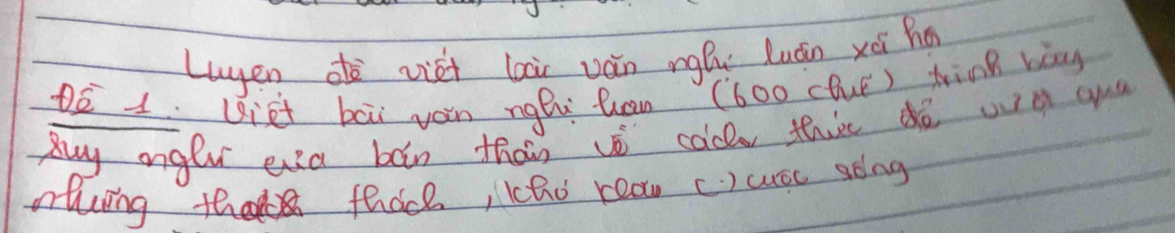 Luyện đề viết bài văn nghị luận xã hội
Đề 1: Viết bài văn nghị luận (600 chữ) trình bày
suy nghĩ của bản thân về cách thức để vượt qua
những thử thách, khó khăn (.) cuộc sống